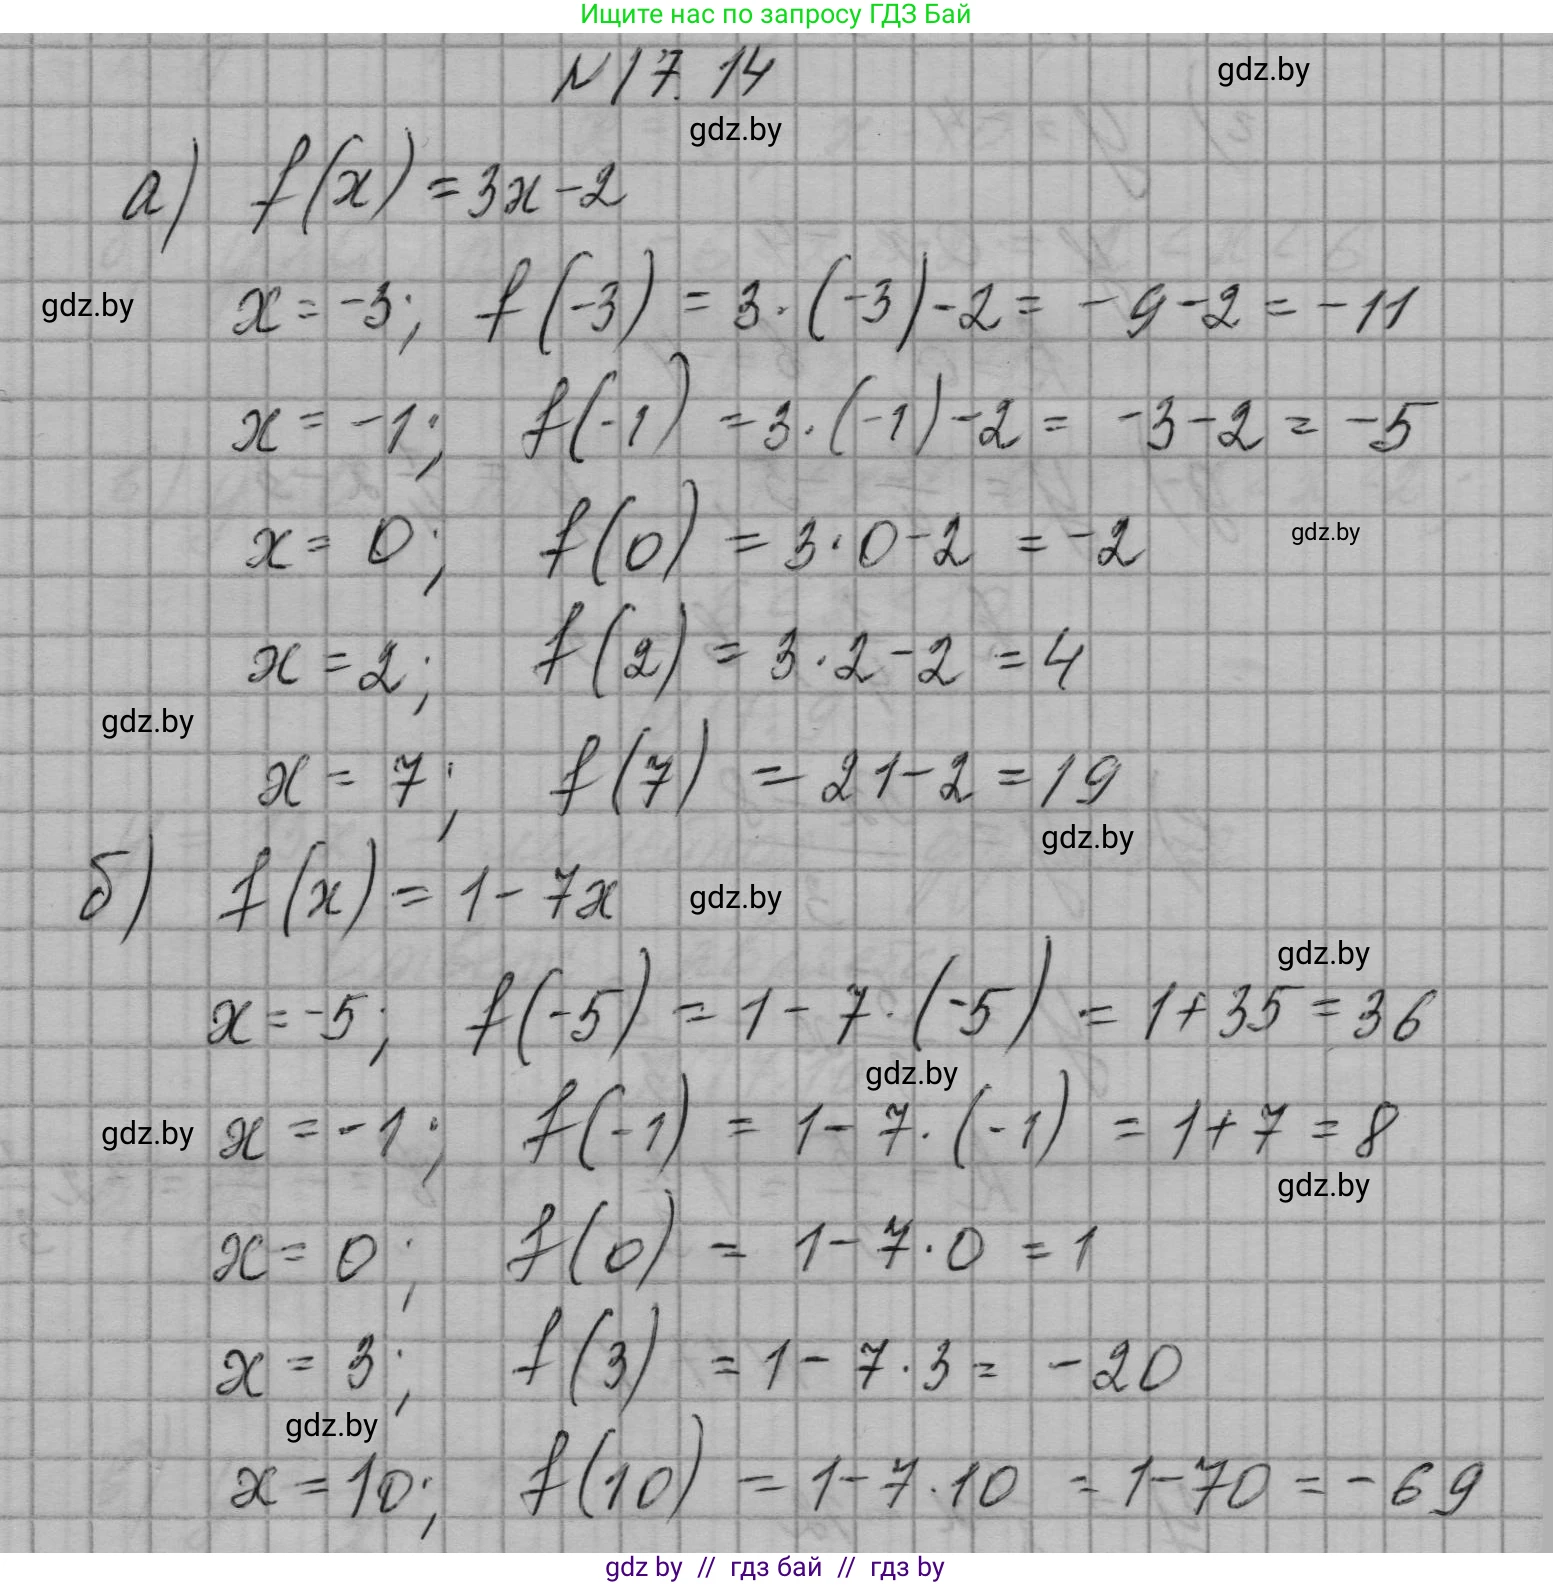 Ищите нас по запросу ГДЗ Бай
N 17. 14
gdz.by
gdz.by
а) f(x) = 3x - 2
gdz.by
x = -3; f(-3) = 3·(-3) - 2 = -9 - 2 = -11
x = -1; f(-1) = 3·(-1) - 2 = -3 - 2 = -5
x = 0; f(0) = 3·0 - 2 = -2
gdz.by
x = 2; f(2) = 3·2 - 2 = 4
gdz.by
x = 7; f(7) = 21 - 2 = 19
gdz.by
б) f(x) = 1 - 7x
gdz.by
gdz.by
x = -5; f(-5) = 1 - 7·(-5) = 1 + 35 = 36
gdz.by
gdz.by
x = -1; f(-1) = 1 - 7·(-1) = 1 + 7 = 8
gdz.by
x = 0; f(0) = 1 - 7·0 = 1
x = 3; f(3) = 1 - 7·3 = -20
gdz.by
x = 10; f(10) = 1 - 7·10 = 1 - 70 = -69
gdz by // гдз бай // гдз by